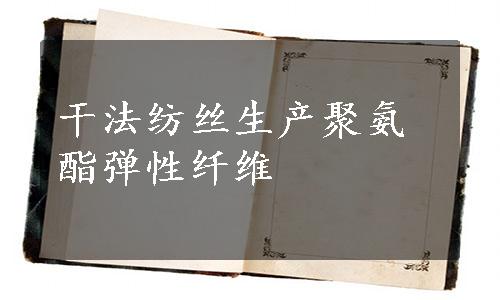 干法纺丝生产聚氨
酯弹性纤维